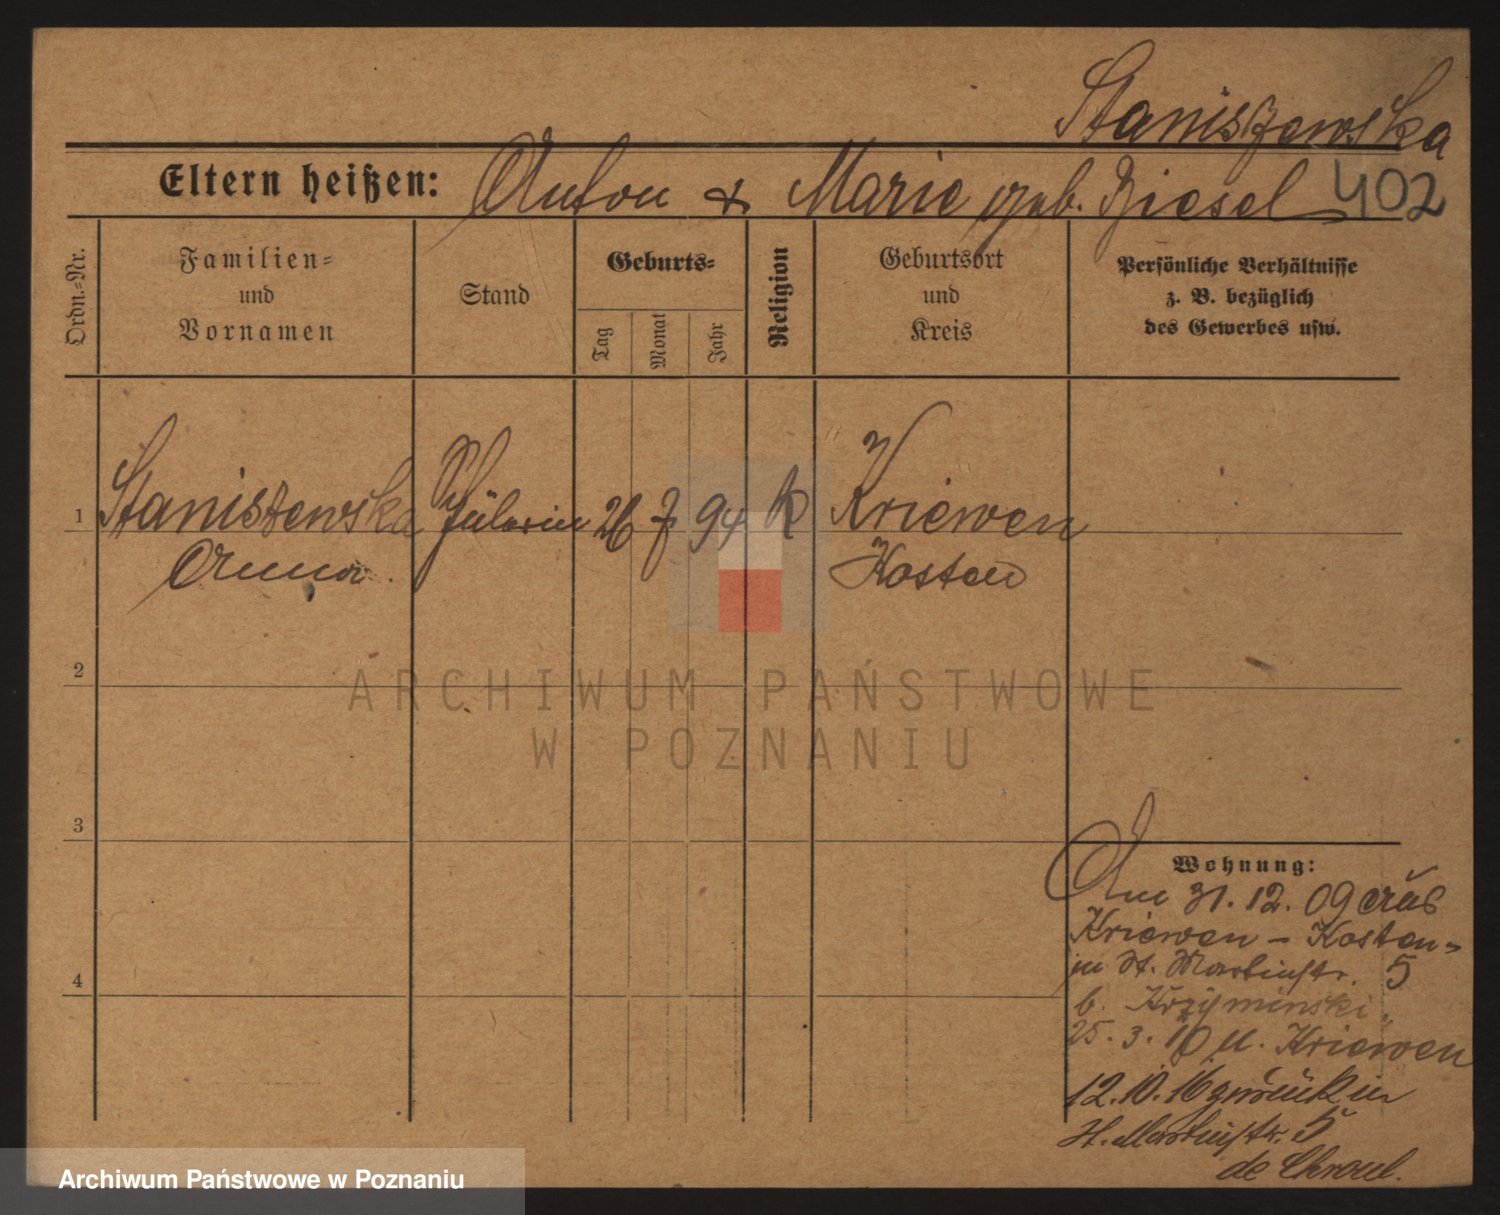 Staniszewska
Eltern heißen: Anton & Marie geb. Ziesel 402
Ordn.=Nr.
Familien=
und
Vornamen
Stand
Geburts=
Tag
Monat
Jahr
Religion
Geburtsort
und
Kreis
Persönliche Verhältnisse
z. B. bezüglich
des Gewerbes usw.
1 Staniszewska Schülerin 26 7 94 k Kriewen
Anna Kosten
ARCHIWUM PAŃSTWOWE
W POZNANIU
2
3
4
Wohnung:
Am 31. 12. 09 aus
Kriewen - Kosten
in St. Martinstr. 5
b. Krzyminski
25. 3. 10 n. Kriewen
12. 10. 16 zurück in
St. Martinstr. 5
Archiwum Państwowe w Poznaniu